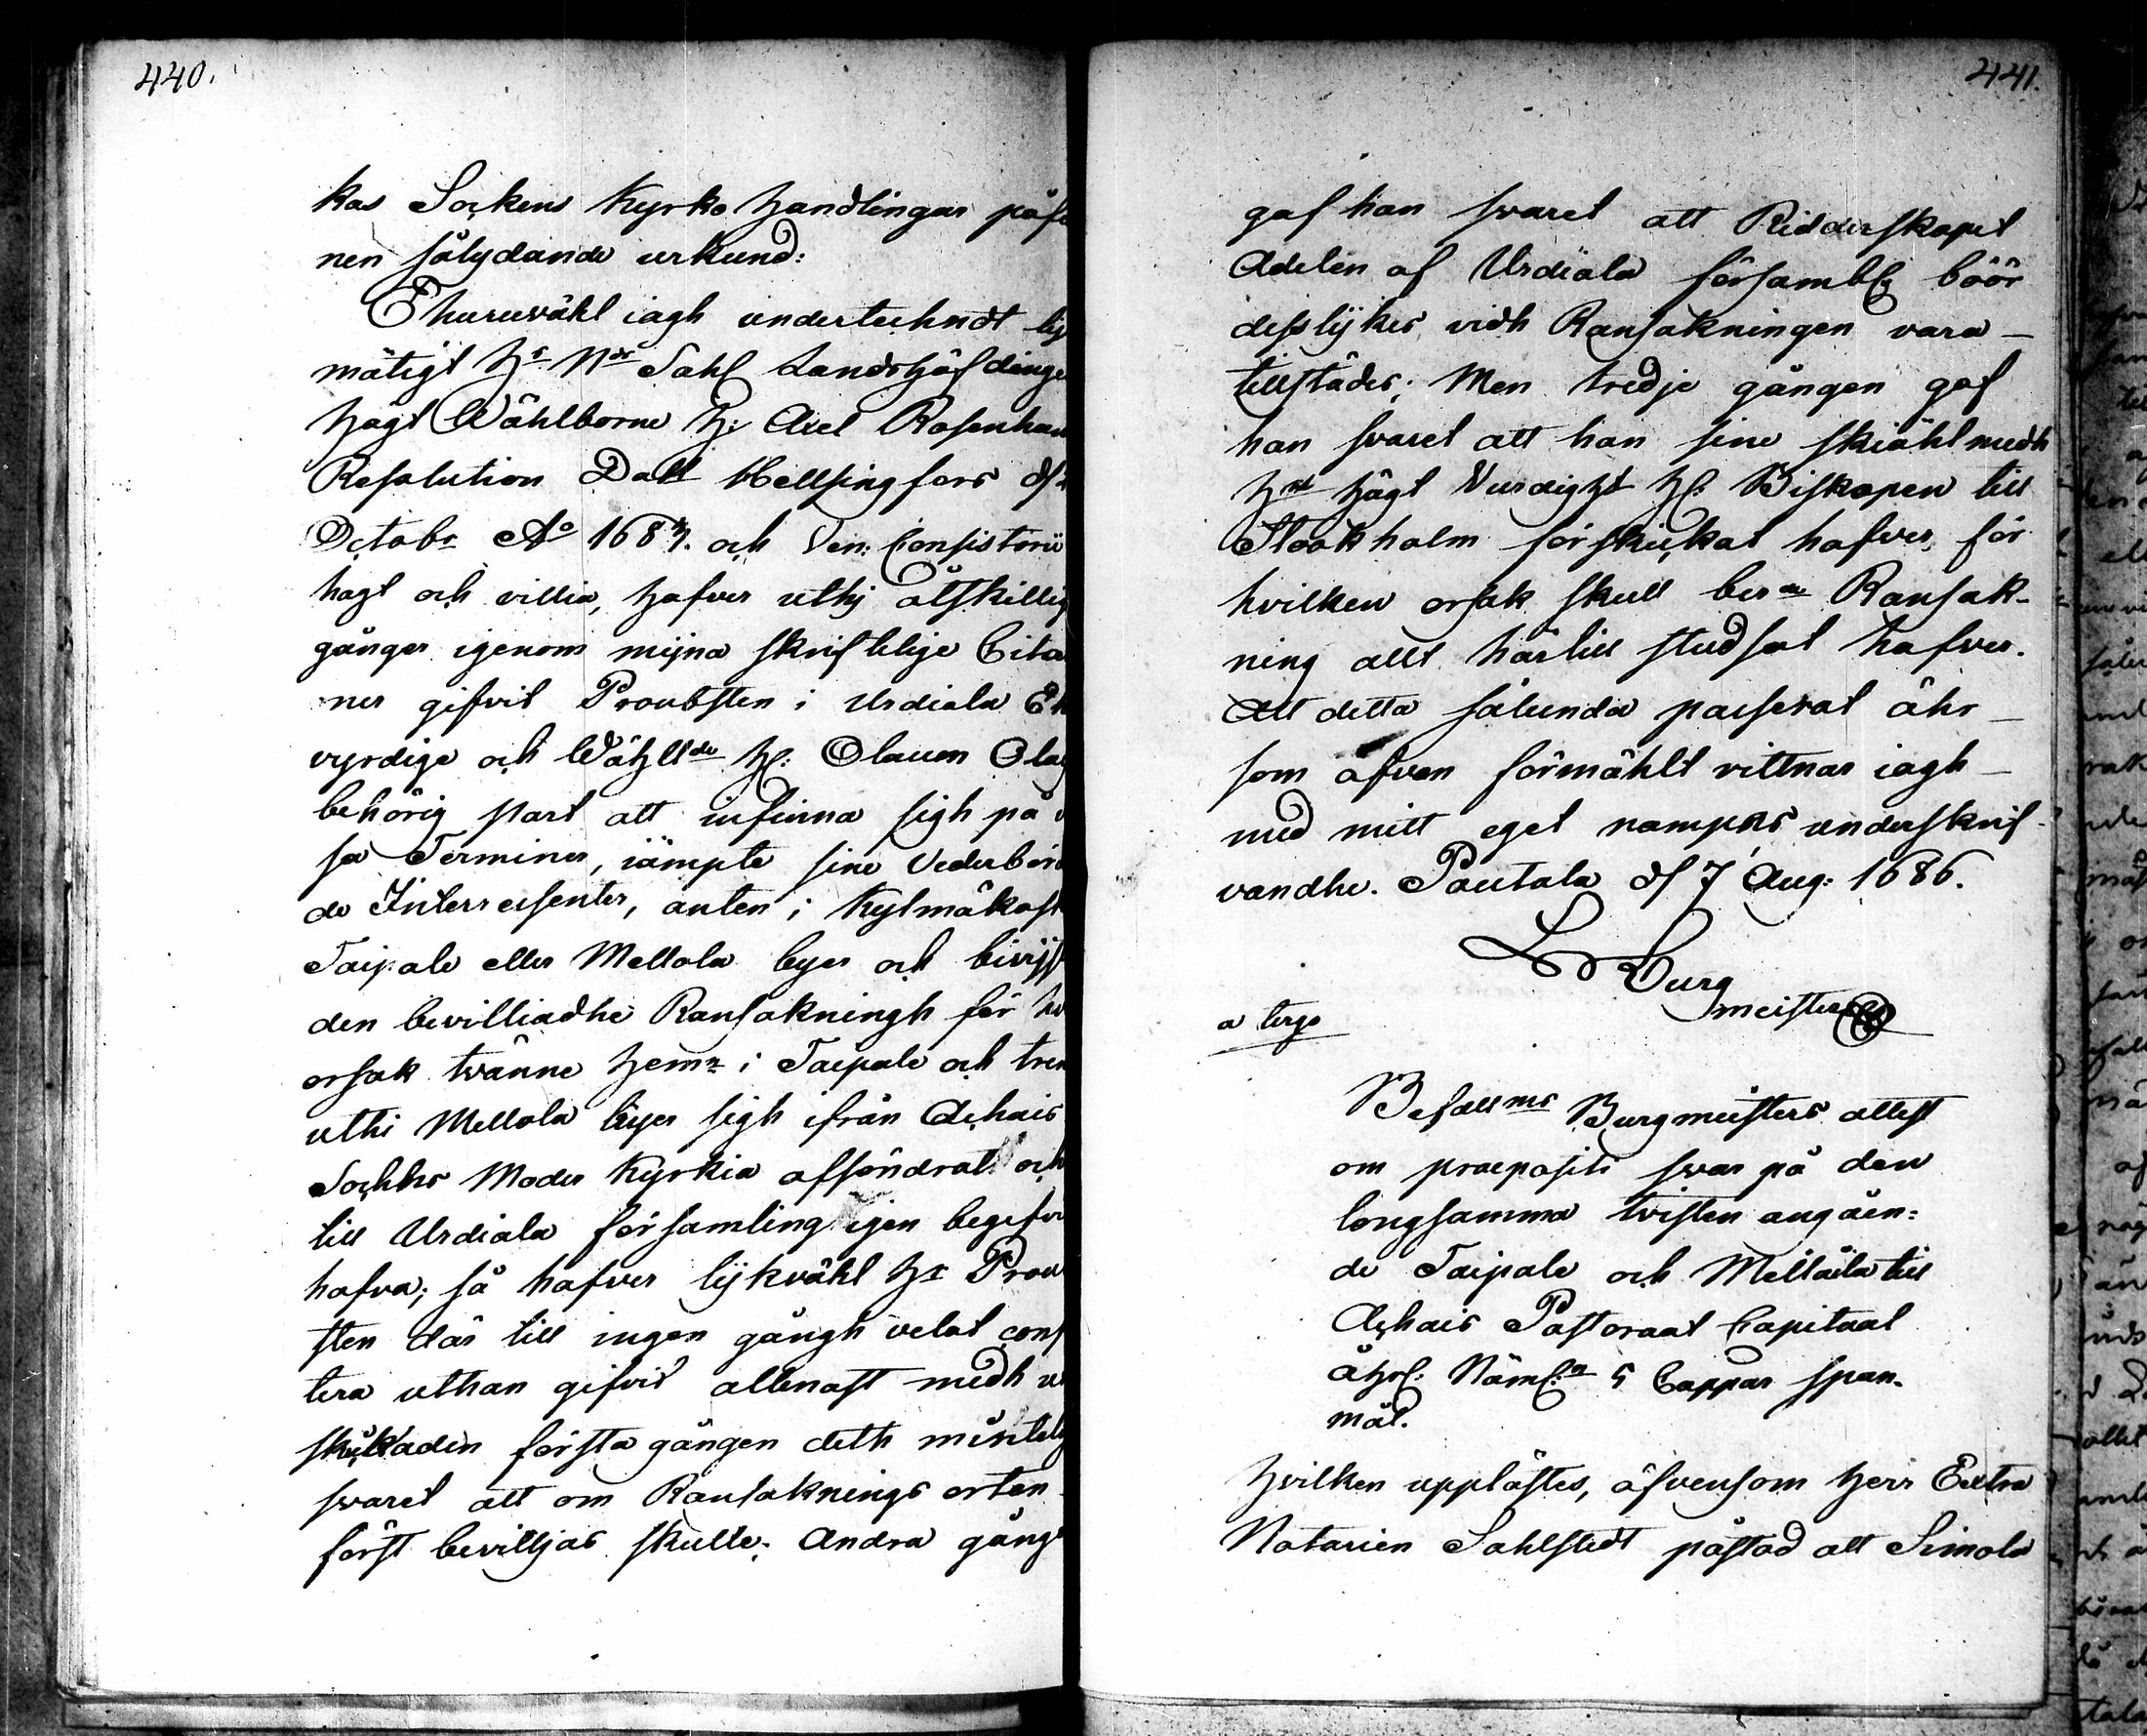 440.
kas Sockens Kyrko handlingar påfu
nen sålydande urkund:
Ehuruwähl iagh undertechndt lij
mätigt Hr Nr Sahl Landshöfdinge
högt Wählborne H: Axel Rosenhan
Resolution Dat Hellsingfors df
Octobr Ao 1684. och Ven: Consistorii
hagt och villia, hafver uthj åtskillig
gånger igenom mijna skriftelige Cita
ner gifvit Proubsten i Urdiala Eh
vyrdige och Wähllde H: Olaum Olag
behörig part att infinna sigh på
sa Terminer, iämpte sine Vederbör
de Interessenter, anten i Kylmäkosk
Taipale eller Mellola byer och bivijst
den bevilliadhe Ransakningh för
orsak tvänne hemn i Taipale och tren
uthi Mellola byer sigh ifrån Achais
Sochns Moder Kyrkia afsöndrat och
till Urdiala församling igen begifvi
hafva; så hafver lijkvähl Hr Prou
sten där till ingen gångh velat cons
tera uthan gifvit allenast medh
skickaden första gången deth muntelig
svaret att om Ransaknings orten
först beviljas skulle; Andra gång
441.
gaf han svaret att Ridderskapet
Adelen af Urdiala församblg böör
desslijkes vidh Ransakningen vara –
tillstädes; Men tredje gången gaf
han svaret att han sine skiähl medh
Hrt högt Vurdight H: Biskopen till
Stockholm förskickat hafver, för
hvilken orsak skull berde Ransak-
ning allt härtill studsat hafver.
Att detta sålunda passerat ähr –
som ofvan förmählt vittnar iagh –
med mitt eget nampns underskrif-
vandhe. Poutala df 7 Aug: 1686.
Burg
meister
a tergo
Befallms Burgmeisters attest
om praepositi svar på den
longsamma tvisten angåen:
de Taipale och Mellåla till
Achais Pastoraat Capitaal
åhrl: Nämln 5 Cappar span-
mål.
Hvilken upplästes, äfvensom Herr Extra
Notarien Sahlstedt påstod att Simola